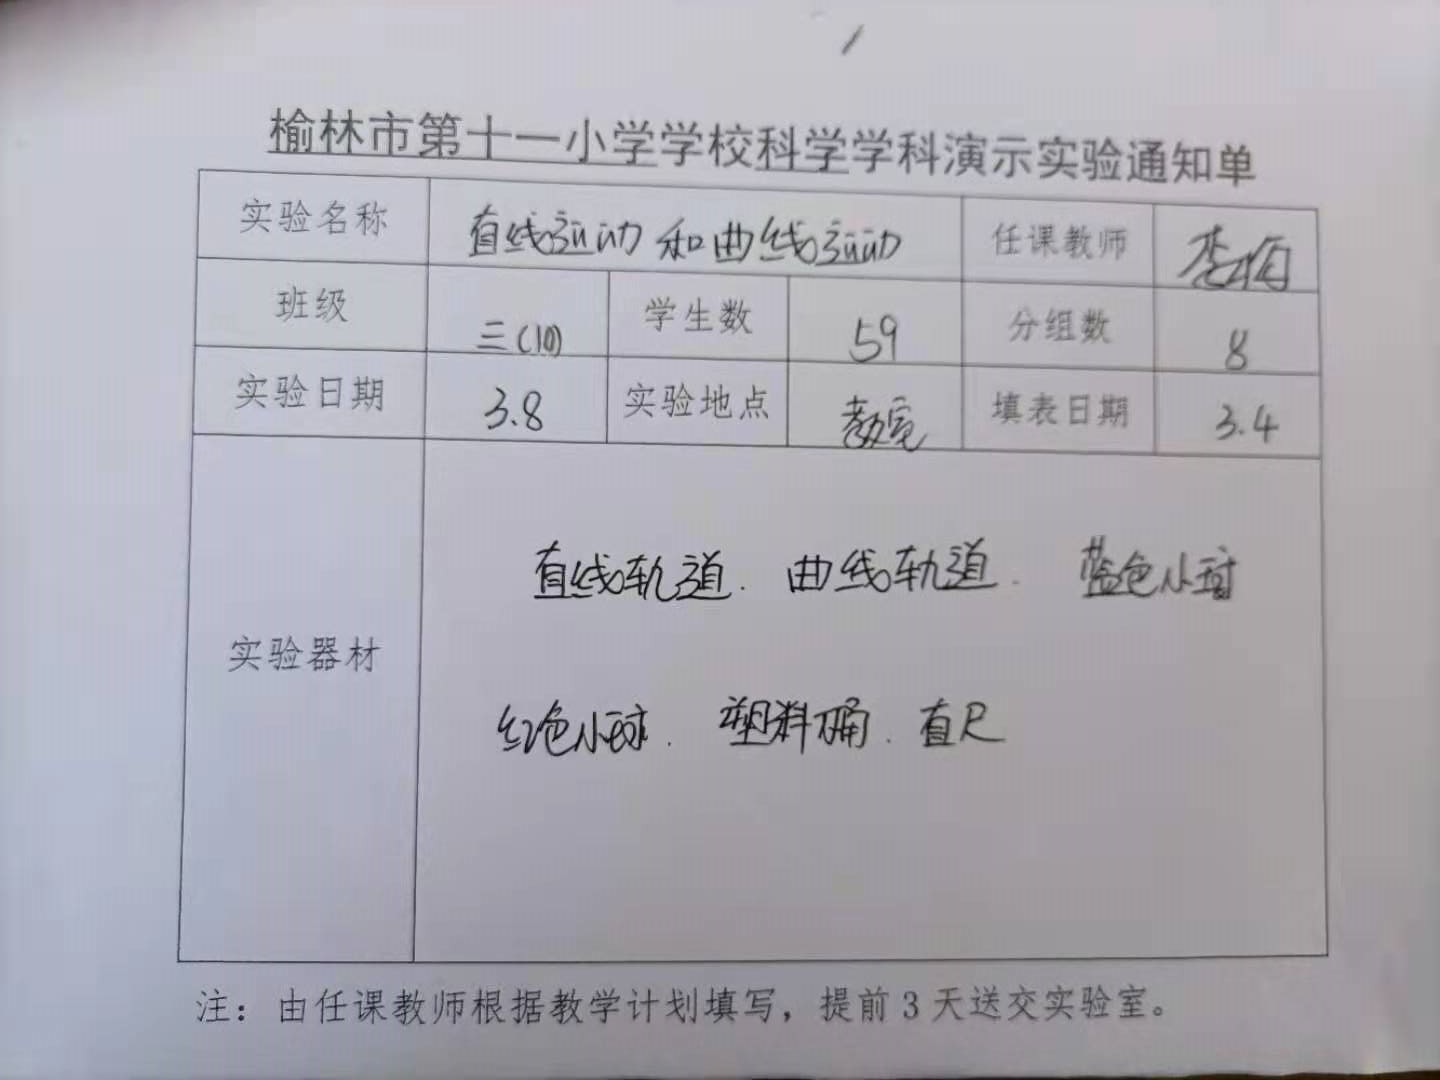 榆林市第十一小学学校科学学科演示实验通知单
实验名称 直线运动和曲线运动 任课教师
班级 三(10) 学生数 59 分组数 8
实验日期 3.8 实验地点 教室 填表日期 3.4
直线轨道. 曲线轨道. 蓝色小球
实验器材
红色小球. 塑料桶. 直尺
注：由任课教师根据教学计划填写，提前3天送交实验室。